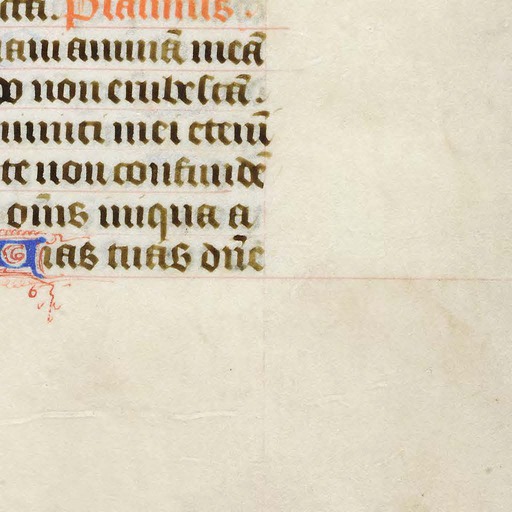 cta. Psalmus.
am animā meā
do non erubescā.
inimici mei eteni̅
te non confundē
om̄s iniqua a
Uias tuas dn̄e